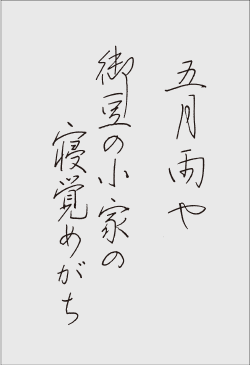 五月雨や
御豆の小家の
寝覚めがち